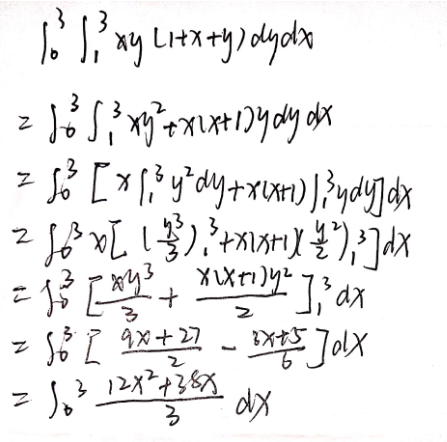 ∫₀³ ∫₁³ xy (1+x+y) dy dx
= ∫₀³ ∫₁³ xy² + x(x+1)y dy dx
= ∫₀³ [x ∫₁³ y² dy + x(x+1) ∫₁³ y dy] dx
= ∫₀³ x[ (y³/3)₁³ + x(x+1)(y²/2)₁³ ] dx
= ∫₀³ [ xy³/3 + x(x+1)y²/2 ]₁³ dx
= ∫₀³ [ (9x+27)/2 - (3x+5)/6 ] dx
= ∫₀³ (12x²+38x)/3 dx